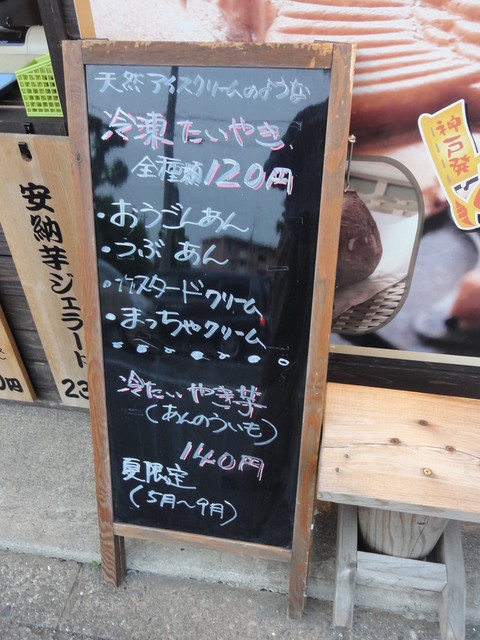 天然アイスクリームのような
冷凍たいやき
全種類120円
・おうごんあん
・つぶあん
・カスタードクリーム
・まっちゃクリーム
冷たいやき芋
(あんのういも)
140円
夏限定
(5月〜9月)
安納芋ジェラート
神戸発